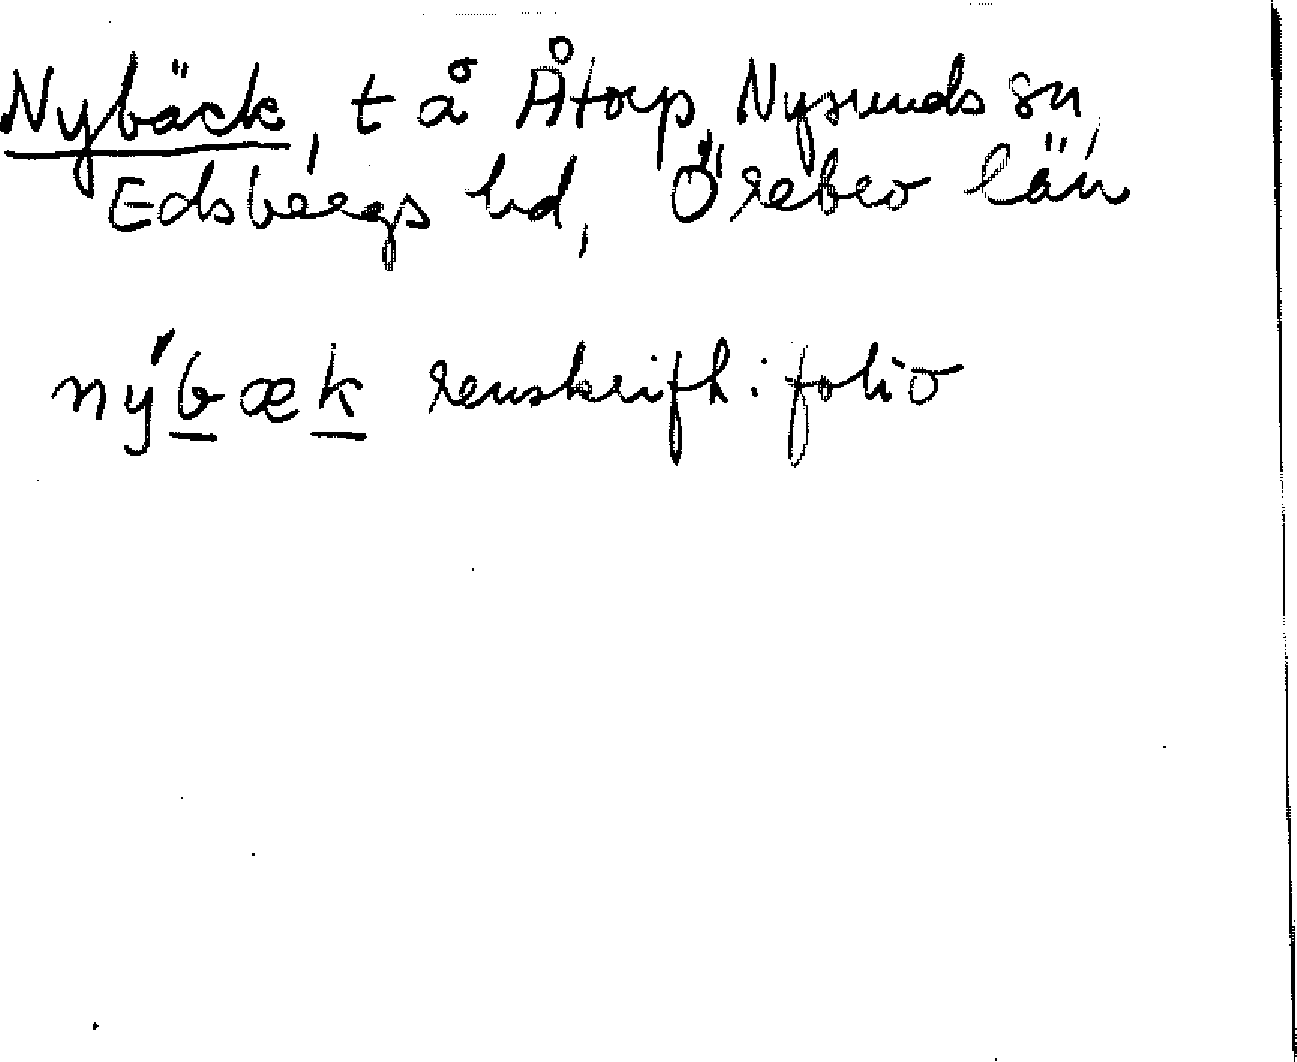 Nybäck, t å Åtorp, Nysunds sn,
Edsbergs hd, Örebro län
nýbæk renskrift i folio